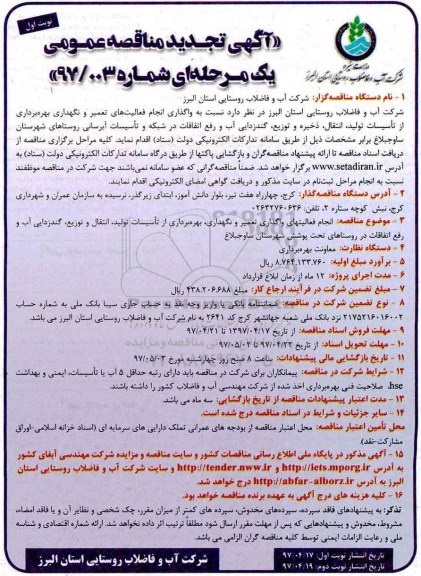 نوبت اول
وزارت نیرو
شرکت آب و فاضلاب روستایی استان البرز
«آگهی تجدید مناقصه عمومی
یک مرحله‌ای شماره ۹۷/۰۰۳»
۱ - نام دستگاه مناقصه‌گزار: شرکت آب و فاضلاب روستایی استان البرز
شرکت آب و فاضلاب روستایی استان البرز در نظر دارد نسبت به واگذاری انجام فعالیت‌های تعمیر و نگهداری بهره‌برداری
از تأسیسات تولید، انتقال، ذخیره و توزیع، گندزدایی آب و رفع اتفاقات در شبکه و تأسیسات آبرسانی روستاهای شهرستان
ساوجبلاغ برابر مشخصات ذیل از طریق سامانه تدارکات الکترونیکی دولت (ستاد) اقدام نماید. کلیه مراحل برگزاری مناقصه از
دریافت اسناد مناقصه تا ارائه پیشنهاد مناقصه‌گران و بازگشایی پاکتها از طریق درگاه سامانه تدارکات الکترونیکی دولت (ستاد) به
آدرس www.setadiran.ir برگزار خواهد شد. ضمناً مناقصه‌گرانی که عضو سامانه نمی‌باشند جهت شرکت در مناقصه موظفند
نسبت به انجام مراحل ثبت‌نام در سایت مذکور و دریافت گواهی امضای الکترونیکی اقدام نمایند.
۲ - آدرس دستگاه مناقصه‌گذار: کرج، چهارراه هفت تیر، بلوار دانش آموز، ابتدای زیرگذر، نرسیده به سازمان عمران و شهرداری
کرج، نبش کوچه ستاره ۲، تلفن:
۳ - موضوع مناقصه: انجام فعالیتهای واگذاری تعمیر و نگهداری، بهره‌برداری از تأسیسات تولید، انتقال و توزیع، گندزدایی آب و
رفع اتفاقات در روستاهای تحت پوشش شهرستان ساوجبلاغ
۴ - دستگاه نظارت: معاونت بهره‌برداری
۵ - برآورد مبلغ اولیه: ۸.۷۶۴.۱۳۳.۷۶۰ ریال
۶ - مدت اجرای پروژه: ۱۲ ماه از زمان ابلاغ قرارداد
۷ - مبلغ تضمین شرکت در فرآیند ارجاع کار: مبلغ ۴۳۸.۲۰۶.۶۸۸ ریال
۸ - نوع تضمین شرکت در مناقصه: ضمانتنامه بانکی یا واریز وجه نقد به حساب جاری سیبا بانک ملی به شماره حساب
۲۱۷۵۲۱۶۰۱۶۰۰۲ نزد بانک ملی شعبه جهانشهر کرج کد ۲۶۴۱ به نام شرکت آب و فاضلاب روستایی استان البرز می باشد.
۹ - مهلت فروش اسناد مناقصه: از تاریخ ۱۳۹۷/۰۴/۱۷ تا ۹۷/۰۴/۲۱
۱۰ - مهلت تحویل اسناد: از تاریخ ۹۷/۰۴/۲۲ تا ۹۷/۰۵/۰۲
۱۱ - تاریخ بازگشایی مالی پیشنهادات: ساعت ۸ صبح روز چهارشنبه مورخ ۹۷/۰۵/۰۳
۱۲ - شرایط شرکت در مناقصه: پیمانکاران برای شرکت در مناقصه باید دارای رتبه حداقل ۵ آب یا تأسیسات، ایمنی و بهداشت
hse، صلاحیت فنی بهره‌برداری اخذ شده از شرکت مهندسی آب و فاضلاب کشور را داشته باشند.
۱۳ - مدت اعتبار پیشنهادات مناقصه از تاریخ بازگشایی: سه ماه می باشد.
۱۴ - سایر جزئیات و شرایط در اسناد مناقصه درج شده است.
محل تأمین اعتبار مناقصه: محل اعتبار مناقصه از بودجه های عمرانی تملک دارایی های سرمایه ای (اسناد خزانه اسلامی-اوراق
مشارکت-نقد).
۱۵ - آگهی مذکور در پایگاه ملی اطلاع رسانی مناقصات کشور و سایت مناقصه و مزایده شرکت مهندسی آبفای کشور
به آدرس http://iets.mporg.ir و http://tender.nww.ir و سایت شرکت آب و فاضلاب روستایی استان
البرز به آدرس http://abfar-alborz.ir درج خواهد شد.
۱۶ - کلیه هزینه های درج آگهی به عهده برنده مناقصه خواهد بود.
تذکر: به پیشنهادهای فاقد سپرده، سپرده‌های مخدوش، سپرده های کمتر از میزان مقرر، چک شخصی و نظایر آن و یا فاقد امضاء،
مشروط، مخدوش و پیشنهادهایی که پس از مهلت مقرر ارسال شود مطلقاً ترتیب اثر داده نخواهد شد. ارائه شماره اقتصادی و شناسه
ملی و رعایت الزامات ایمنی توسط کلیه مناقصه گران الزامی می باشد.
تاریخ انتشار نوبت اول: ۹۷/۰۴/۱۷
تاریخ انتشار نوبت دوم: ۹۷/۰۴/۱۹
شرکت آب و فاضلاب روستایی استان البرز